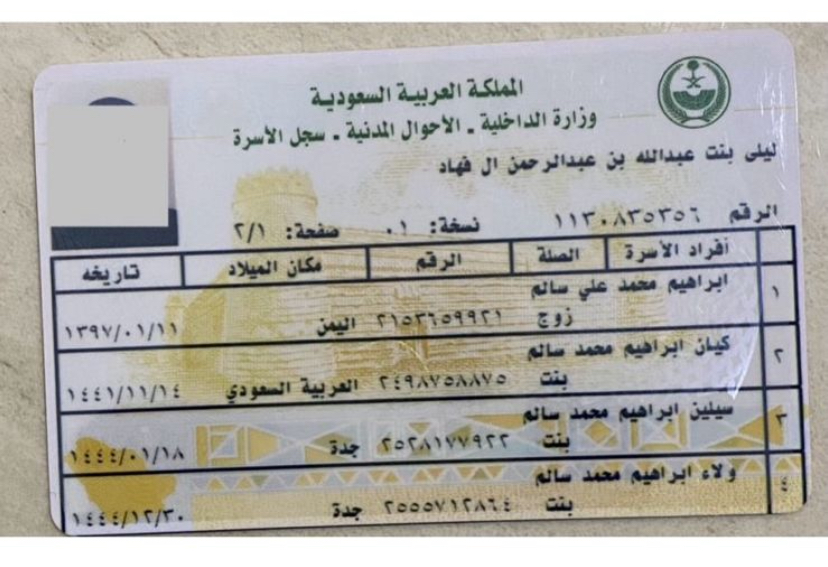 المملكة العربية السعودية
وزارة الداخلية - الأحوال المدنية - سجل الأسرة
ليلى بنت عبدالله بن عبدالرحمن ال فهاد
الرقم ١١٣٠٨٣٥٣٥٦ نسخة: ٠١ صفحة: ٢/١
أفراد الأسرة الصلة الرقم مكان الميلاد تاريخه
١ ابراهيم محمد علي سالم
زوج ٢١٥٣٦٥٩٩٢١ اليمن ١٣٩٧/٠١/١١
٢ كيان ابراهيم محمد سالم
بنت ٢٤٩٨٧٥٨٨٧٥ العربية السعودي ١٤٤١/١١/١٤
٣ سيلين ابراهيم محمد سالم
بنت ٢٥٢٨١٧٧٩٢٢ جدة ١٤٤٤/٠١/١٨
٤ ولاء ابراهيم محمد سالم
بنت ٢٥٥٥٧١٢٨٦٤ جدة ١٤٤٤/١٢/٣٠